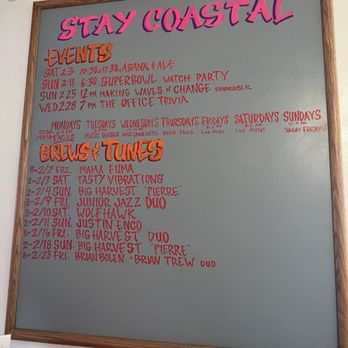 STAY COASTAL
EVENTS
SAT 2.3 10:30-11:30 ASANA & ALE
SUN 2.11 6:30 SUPERBOWL WATCH PARTY
SUN 2.25 12PM MAKING WAVES of CHANGE FUNDRAISER
WED 2.28 7PM THE OFFICE TRIVIA
MONDAYS TUESDAYS WEDNESDAYS THURSDAYS FRIDAYS SATURDAYS SUNDAYS
MUSIC BINGO LIVE MUSIC LIVE MUSIC SUNDAY FUNDAY
BREWS & TUNES
2/2 FRI. MAMA FUMA
2/3 SAT. TASTY VIBRATIONS
2/4 SUN. BIG HARVEST "PIERRE"
2/9 FRI. JUNIOR JAZZ DUO
2/10 SAT. WOLFHAWK
2/11 SUN. JUSTIN ENCO
2/16 FRI. BIG HARVEST DUO
2/18 SUN. BIG HARVEST "PIERRE"
2/23 FRI. BRIAN BOLEN & BRIAN TREW DUO